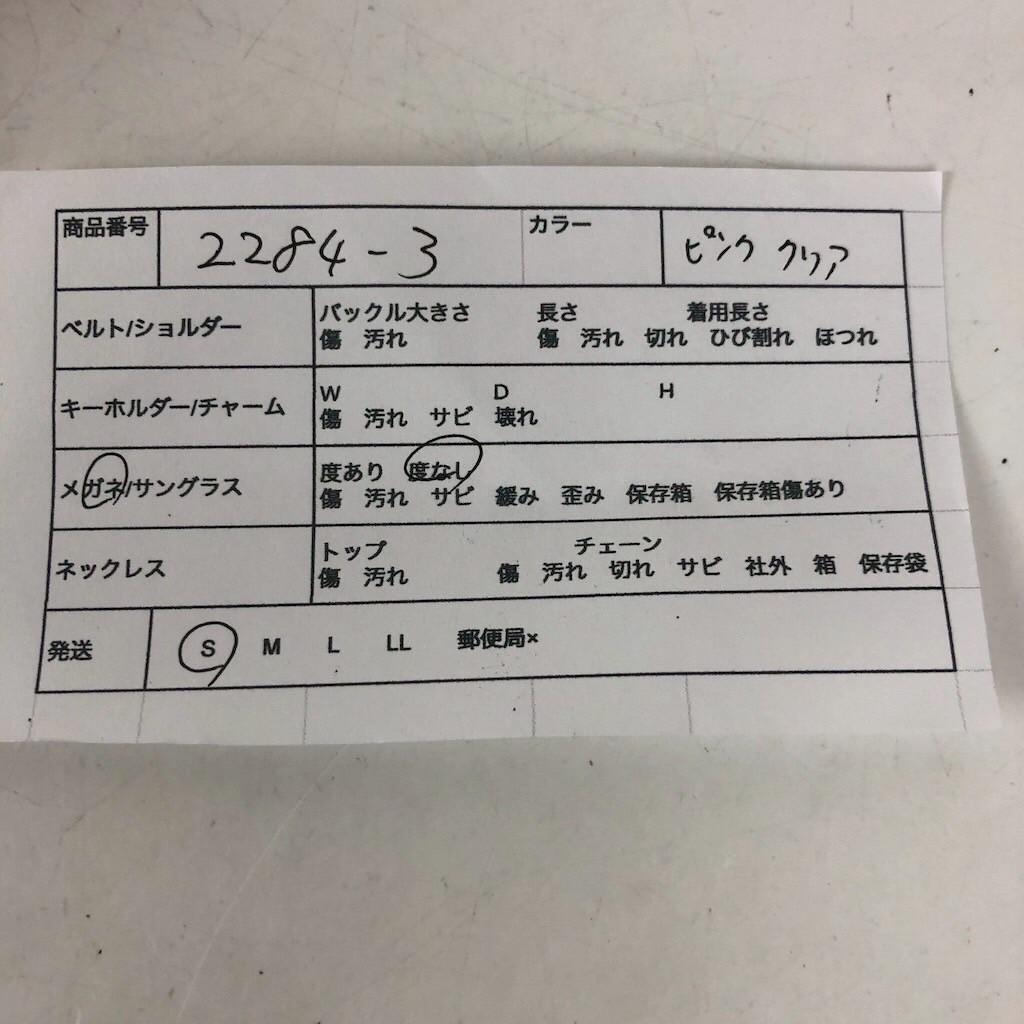 商品番号 2284-3 カラー ピンク クリア
ベルト/ショルダー バックル大きさ 長さ 着用長さ
傷 汚れ 傷 汚れ 切れ ひび割れ ほつれ
キーホルダー/チャーム W D H
傷 汚れ サビ 壊れ
メガネ/サングラス 度あり 度なし
傷 汚れ サビ 緩み 歪み 保存箱 保存箱傷あり
ネックレス トップ チェーン
傷 汚れ 傷 汚れ 切れ サビ 社外 箱 保存袋
発送 S M L LL 郵便局×